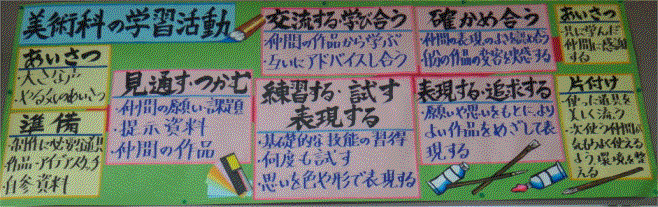 美術科の学習活動
あいさつ
・大きな声
・やる気のあいさつ
準備
作品・アイデアスケッチ
・自参資料
見通す・つかむ
・仲間の願い・課題
・提示資料
・仲間の作品
交流する・学び合う
・仲間の作品から学ぶ
・互いにアドバイスし合う
練習する・試す
表現する
・基礎的な技能の習得
・何度も試す
・思いを色や形で表現する
確かめ合う
表現する・追求する
・願いや思いをもとに、より
よい作品をめざして表
現する
あいさつ
・共に学んだ
仲間に感謝
する
片付け
・使った道具を
正しく洗う
・次使う仲間が
気持ちよく使える
よう環境を整
える